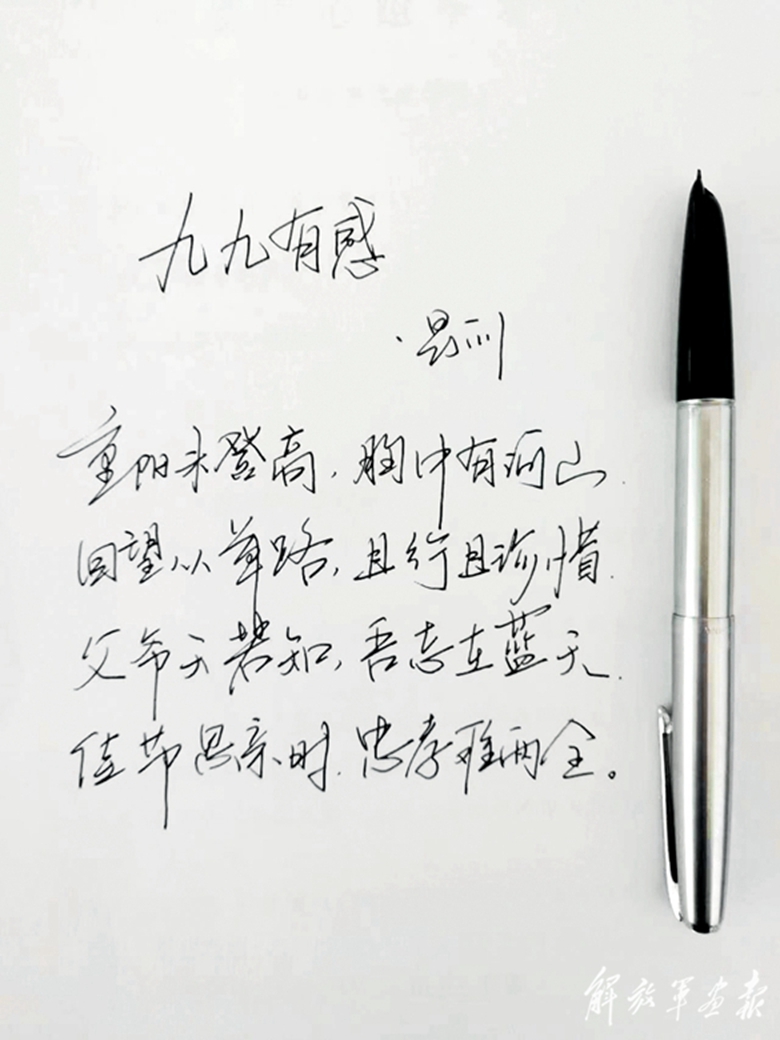 九九有感
重阳未登高，胸中有河山.
回望从军路，且行且珍惜.
父爷天若知，吾志在蓝天.
佳节思亲时，忠孝难两全。
解放军画报